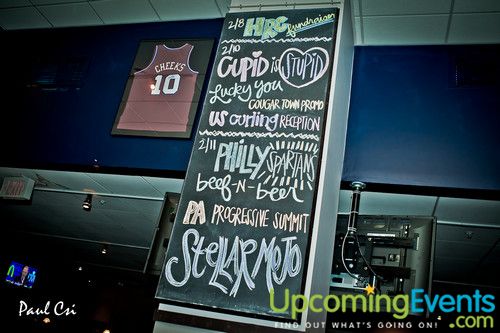 2/8 HRC fundraiser
2/10
CUPID is STUPID
Lucky you
COUGAR TOWN PROMO
US curling RECEPTION
2/11 PHILLY SPARTANS
beef-N-beer
PA PROGRESSIVE SUMMIT
STELLAR MOJO
CHEEKS
10
Paul Csi
UpcomingEvents.com
FIND OUT WHAT'S GOING ON!